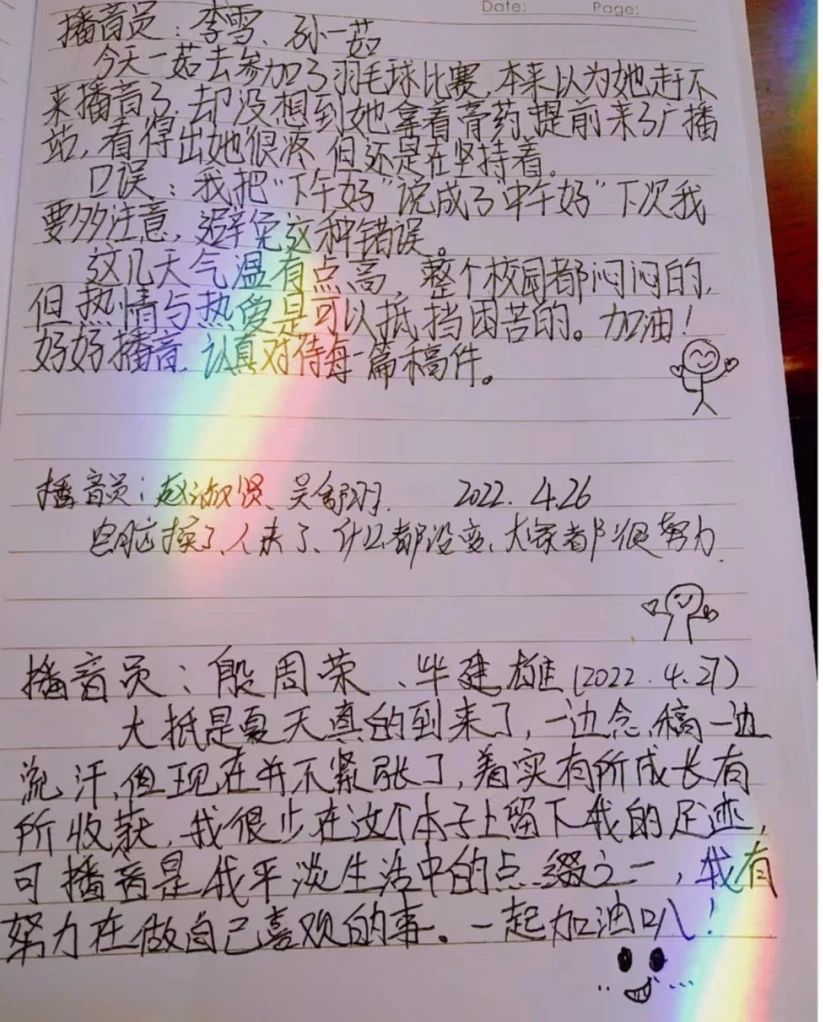 Date: Page:
播音员：李雪、孙一茹
今天一茹去参加了羽毛球比赛,本来以为她赶不
来播音了,却没想到她拿着膏药,提前来了广播
站,看得出她很疼,但还是在坚持着。
口误：我把“下午好”说成了“中午好”下次我
要多多注意,避免这种错误。
这几天气温有点高,整个校园都闷闷的,
但热情与热爱是可以抵挡困苦的。加油！
好好播音,认真对待每一篇稿件。
播音员：赵淑贤、吴舒羽 2022.4.26
电脑换了、人来了、什么都没变、大家都很努力
播音员：殷周荣、毕建雄(2022.4.27)
大抵是夏天真的到来了,一边念稿一边
流汗,但现在并不紧张了,着实有所成长有
所收获,我很少在这个本子上留下我的足迹,
可播音是我平淡生活中的点缀之一,我有
努力在做自己喜欢的事。一起加油叭！